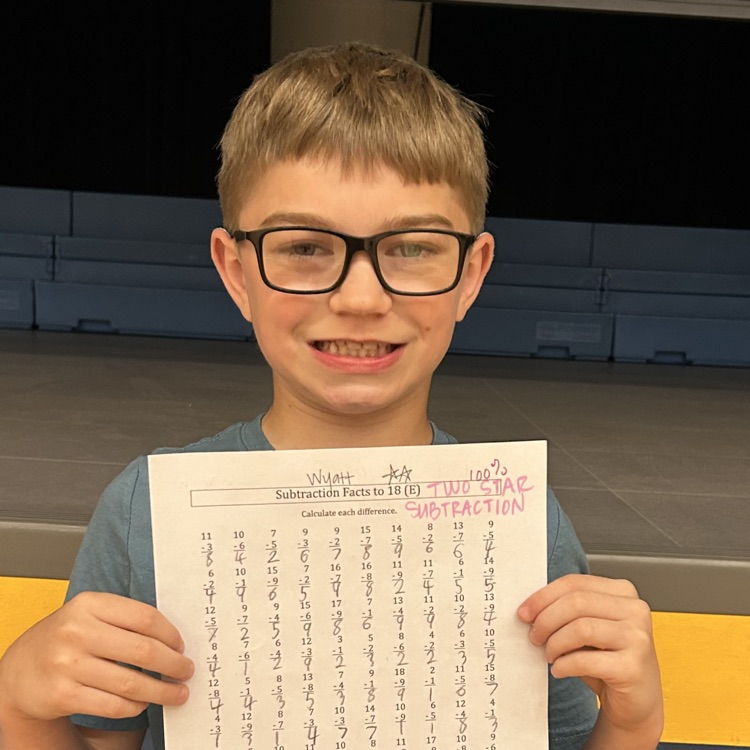 Wyatt ☆☆ 100%
Subtraction Facts to 18 (E) TWO STAR
Calculate each difference. SUBTRACTION
11 10 7 9 9 15 14 8 13 9
-3 -6 -5 -3 -2 -7 -5 -2 -7 -5
8 4 2 6 7 8 9 6 6 4
6 10 15 7 16 16 11 11 6 14
-2 -1 -9 -2 -7 -8 -9 -7 -1 -9
4 9 6 5 9 8 2 4 5 5
12 9 9 15 17 7 13 11 10 13
-5 -7 -4 -6 -9 -1 -4 -2 -2 -9
7 2 5 9 8 6 9 9 8 4
8 7 6 12 3 5 8 4 6 10
-4 -6 -4 -3 -1 -2 -6 -2 -3 -5
4 1 2 9 2 3 2 2 3 5
12 5 8 13 7 9 18 2 11 15
-8 -1 -5 -8 -4 -1 -9 -1 -5 -8
4 4 3 5 3 8 9 1 6 7
4 12 8 10 14 10 6 12 4
-3 -9 -7 -3 -3 -7 -9 -5 -4 -1
1 3 1 4 7 7 1 1 8 3
10 11 10 8 11 17 10 9
-6